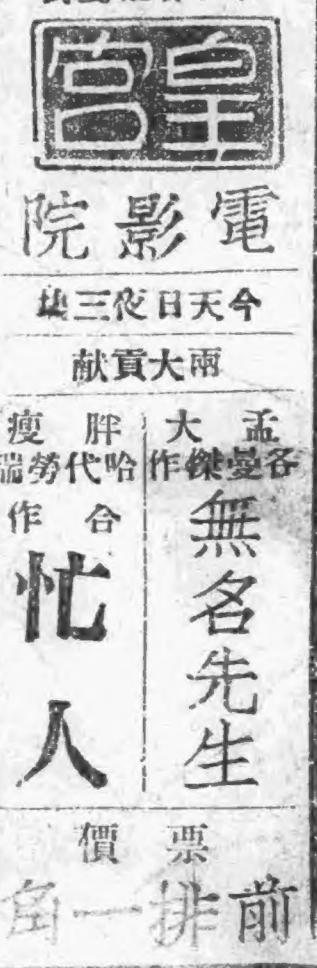 皇宮
電影院
今天日夜三塲
兩大貢献
孟大
各曼傑作
無名先生
胖瘦
哈代勞瑞
合作
忙人
票價
前排一角